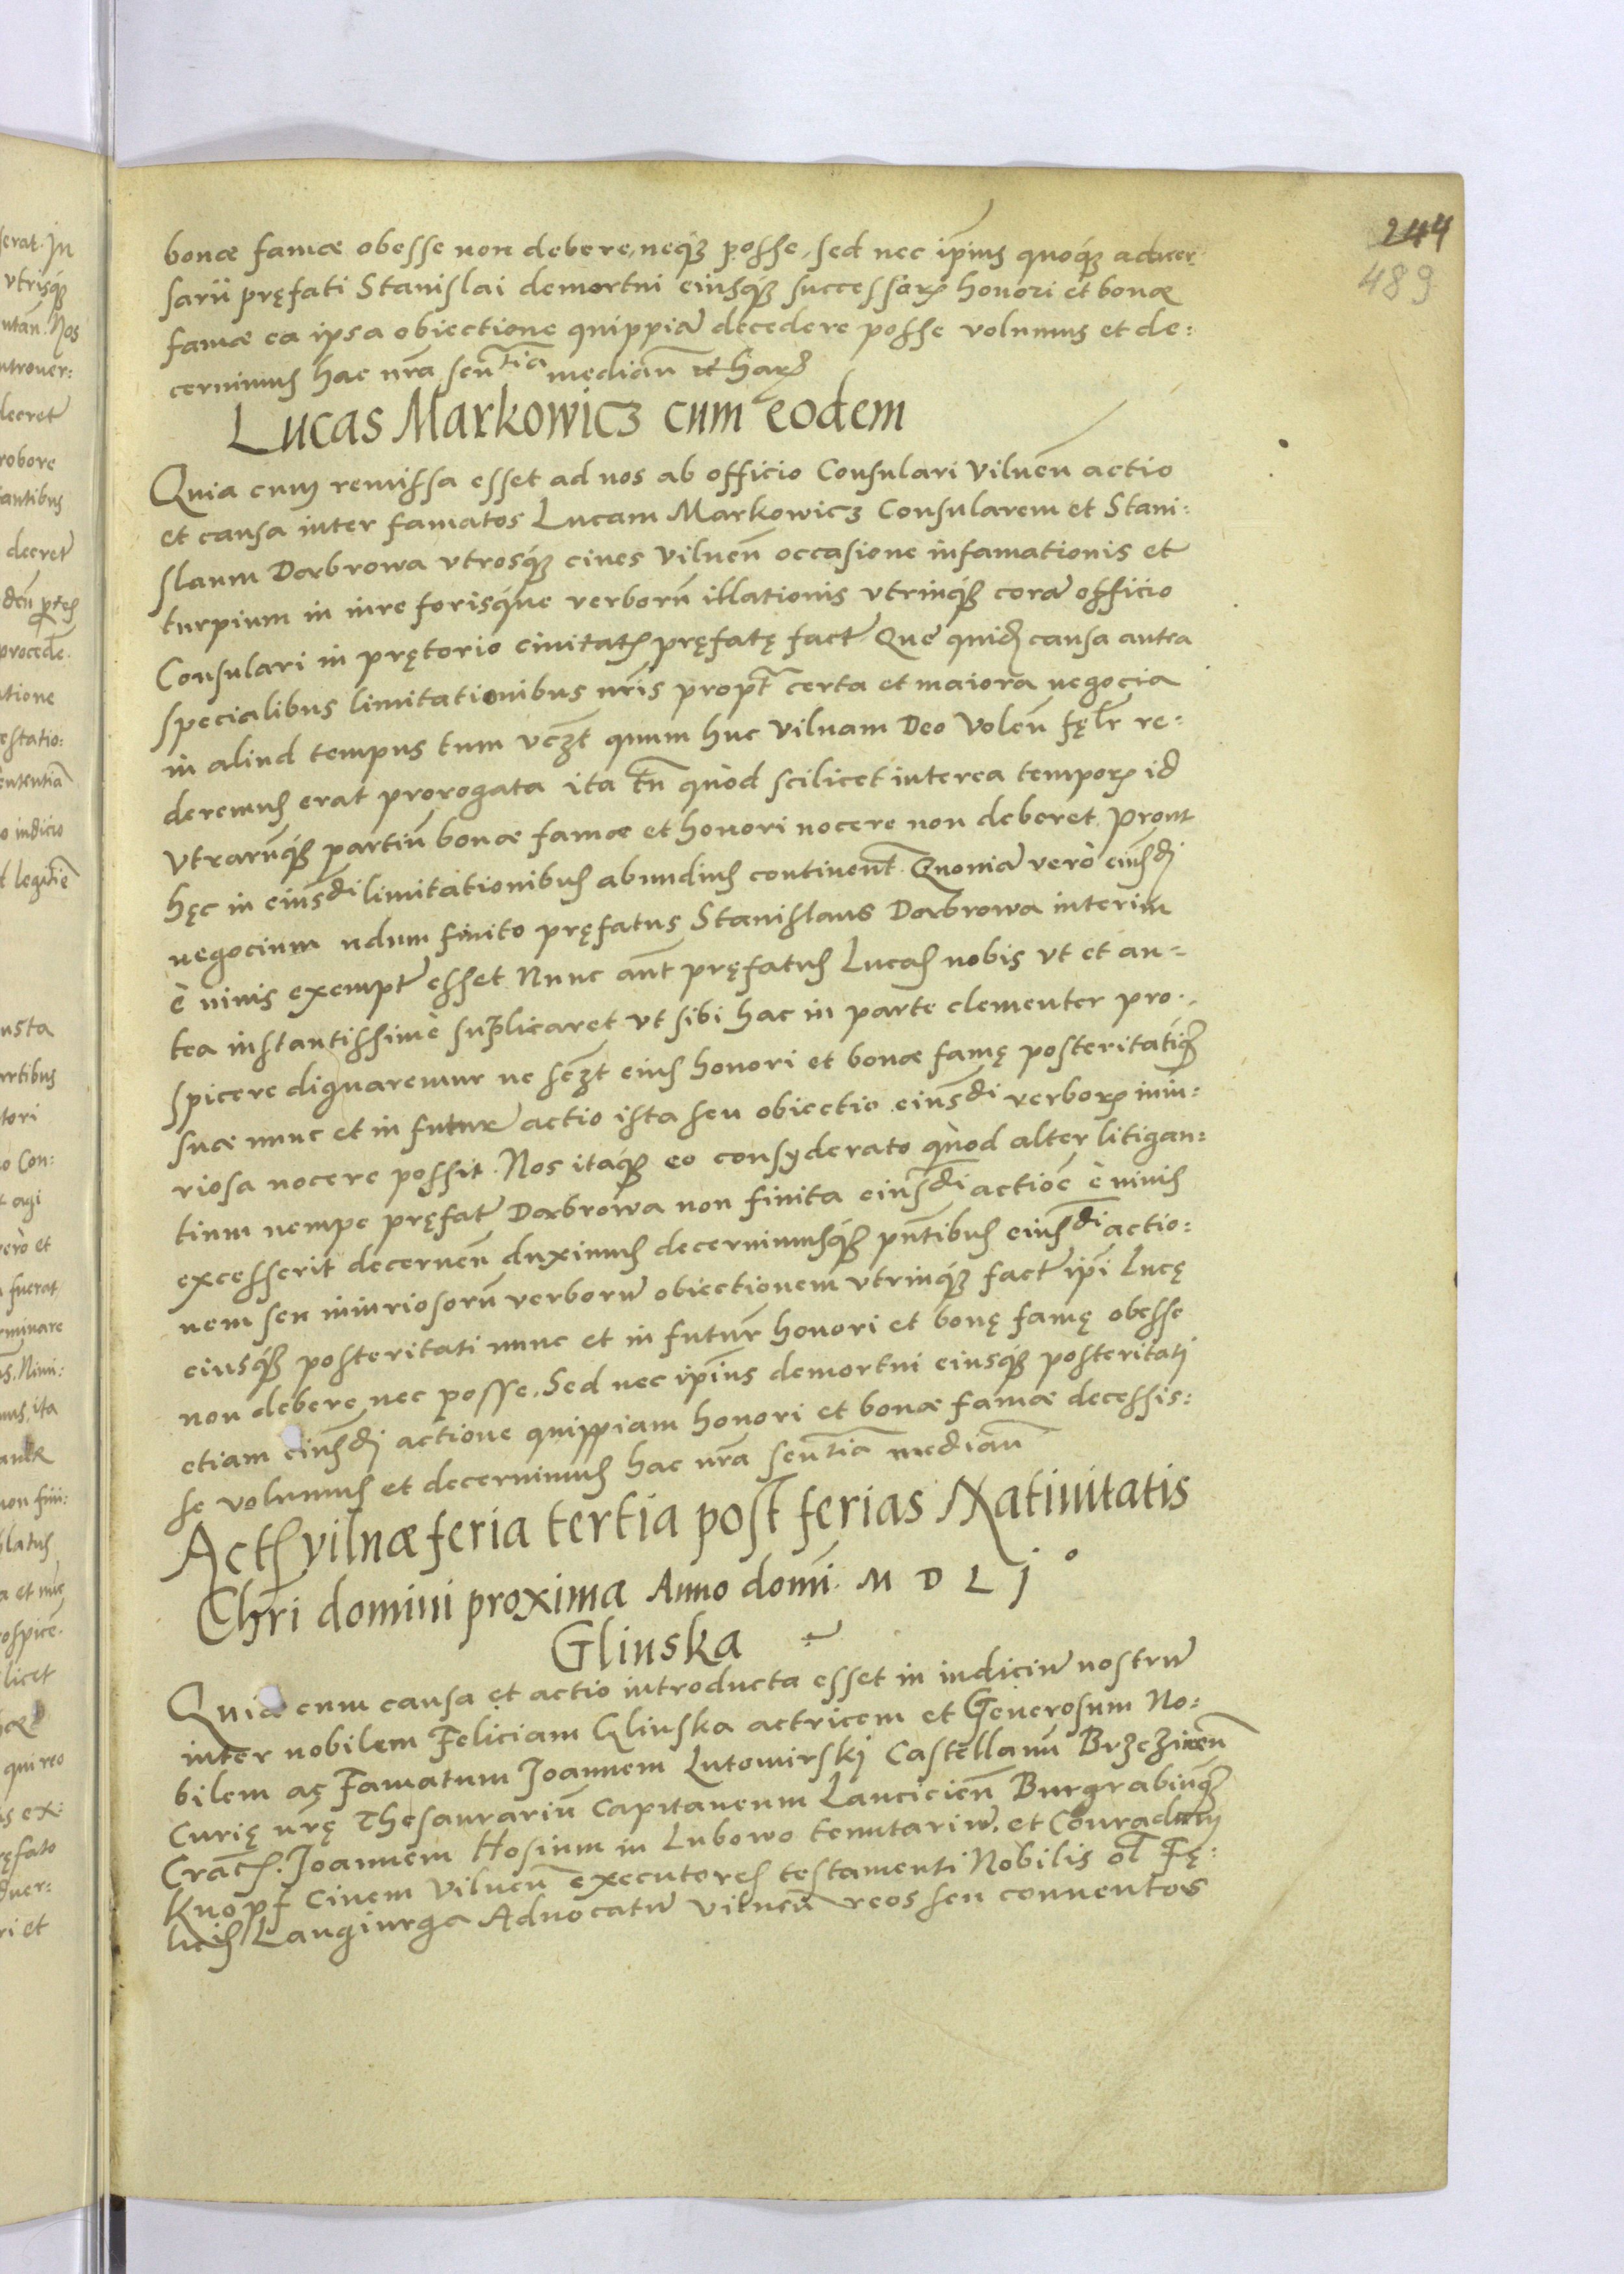 244
489
bonæ famæ obesse non debere, neq́ꝫ posse, sed nec ip̄ius quoq́ꝫ aduer-
sarii pręfati Stanislai demortui eiusq́ꝫ successorꝝ honori et bonæ
famæ ea ipsa obiectione quippiā decedere posse volumus et de:
cernimus hac nr̄a sen̄tia median̄ et harꝝ
Lucas Markowicz cum eodem
Quia cum remissa esset ad nos ab officio Consulari Vilnen̄ actio
et causa inter famatos Lucam Markowicz Consularem et Stani:
slaum Dąbrowa vtrosq́ꝫ ciues Vilnen̄ occasione infamationis et
turpium in iure forisq́ue verborū illationis vtrinq́ꝫ corā officio
Consulari in prętorio ciuitatꝭ pręfatę fact̄ Quę quidꝫ causa antea
specialibus limitationibus nr̄is propt̄ certa et maiora negocia
in aliud tempus tum vcꝫt quum huc Vilnam Deo Volen̄ fęlr̄ re:
deremus erat prorogata ita tn̄ quòd scilicet interea temporꝭ id
Vtrarūq́ꝫ partiū bonæ famæ et honori nocere non deberet. Prout
hęc in eiusdi limitationibus abundius continent̄. Quoniā verò eiusdi
negocium ndum finito pręfatus Stanislaus Dąbrowa interim
è viuis exempt̄ esset Nunc aūt pręfatus Lucas nobis vt et an-
tea instantissimè supplicaret vt sibi hac in parte clementer pro-
spicere dignaremur ne scꝫt eius honori et bonæ famę posteritatiq́ꝫ
suæ nunc et in futurū actio ista seu obiectio eiusdi verborꝝ iniu:
riosa nocere possit. Nos itaq́ꝫ eo consyderato quòd alter litigan:
tium nempe pręfat̄ Dąbrowa non finita eiusdi actiōe è viuis
excesserit decernen̄ duximus decernimusq́ꝫ pn̄tibus eiusdi actio:
nem seu iniuriosorū verborū obiectionem vtrinq́ꝫ fact̄ ip̄i Lucę
eiusq́ꝫ posteritati nunc et in futurū honori et bonę famę obesse
non debere nec posse. Sed nec ip̄ius demortui eiusq́ꝫ posteritati
etiam eiusdi actione quippiam honori et bonæ famæ decessis:
se volumus et decernimus hac nr̄a sen̄tia median̄
Actꝭ Vilnæ feria tertia post ferias Natiuitatis
Chr̄i domini proxima Anno domī. M D L j°
Glinska
Quia cum causa et actio introducta esset in iudiciū nostrū
inter nobilem Feliciam Glinska actricem et Generosum No:
bilem ac Famatum Joannem Lutomirskj Castellanū Brzezinen̄
Curię nr̄ę Thesaurariū Capitaneum Lancicien̄ Burgrabiūq́ꝫ
Cracꝭ. Joannem Hosium in Lubowo tenutariū, et Conradum
Knopf Ciuem Vilnen̄ executores testamenti Nobilis ol̄ Fę:
licis Langiurga Aduocatū Vilnen̄ reos seu conuentos